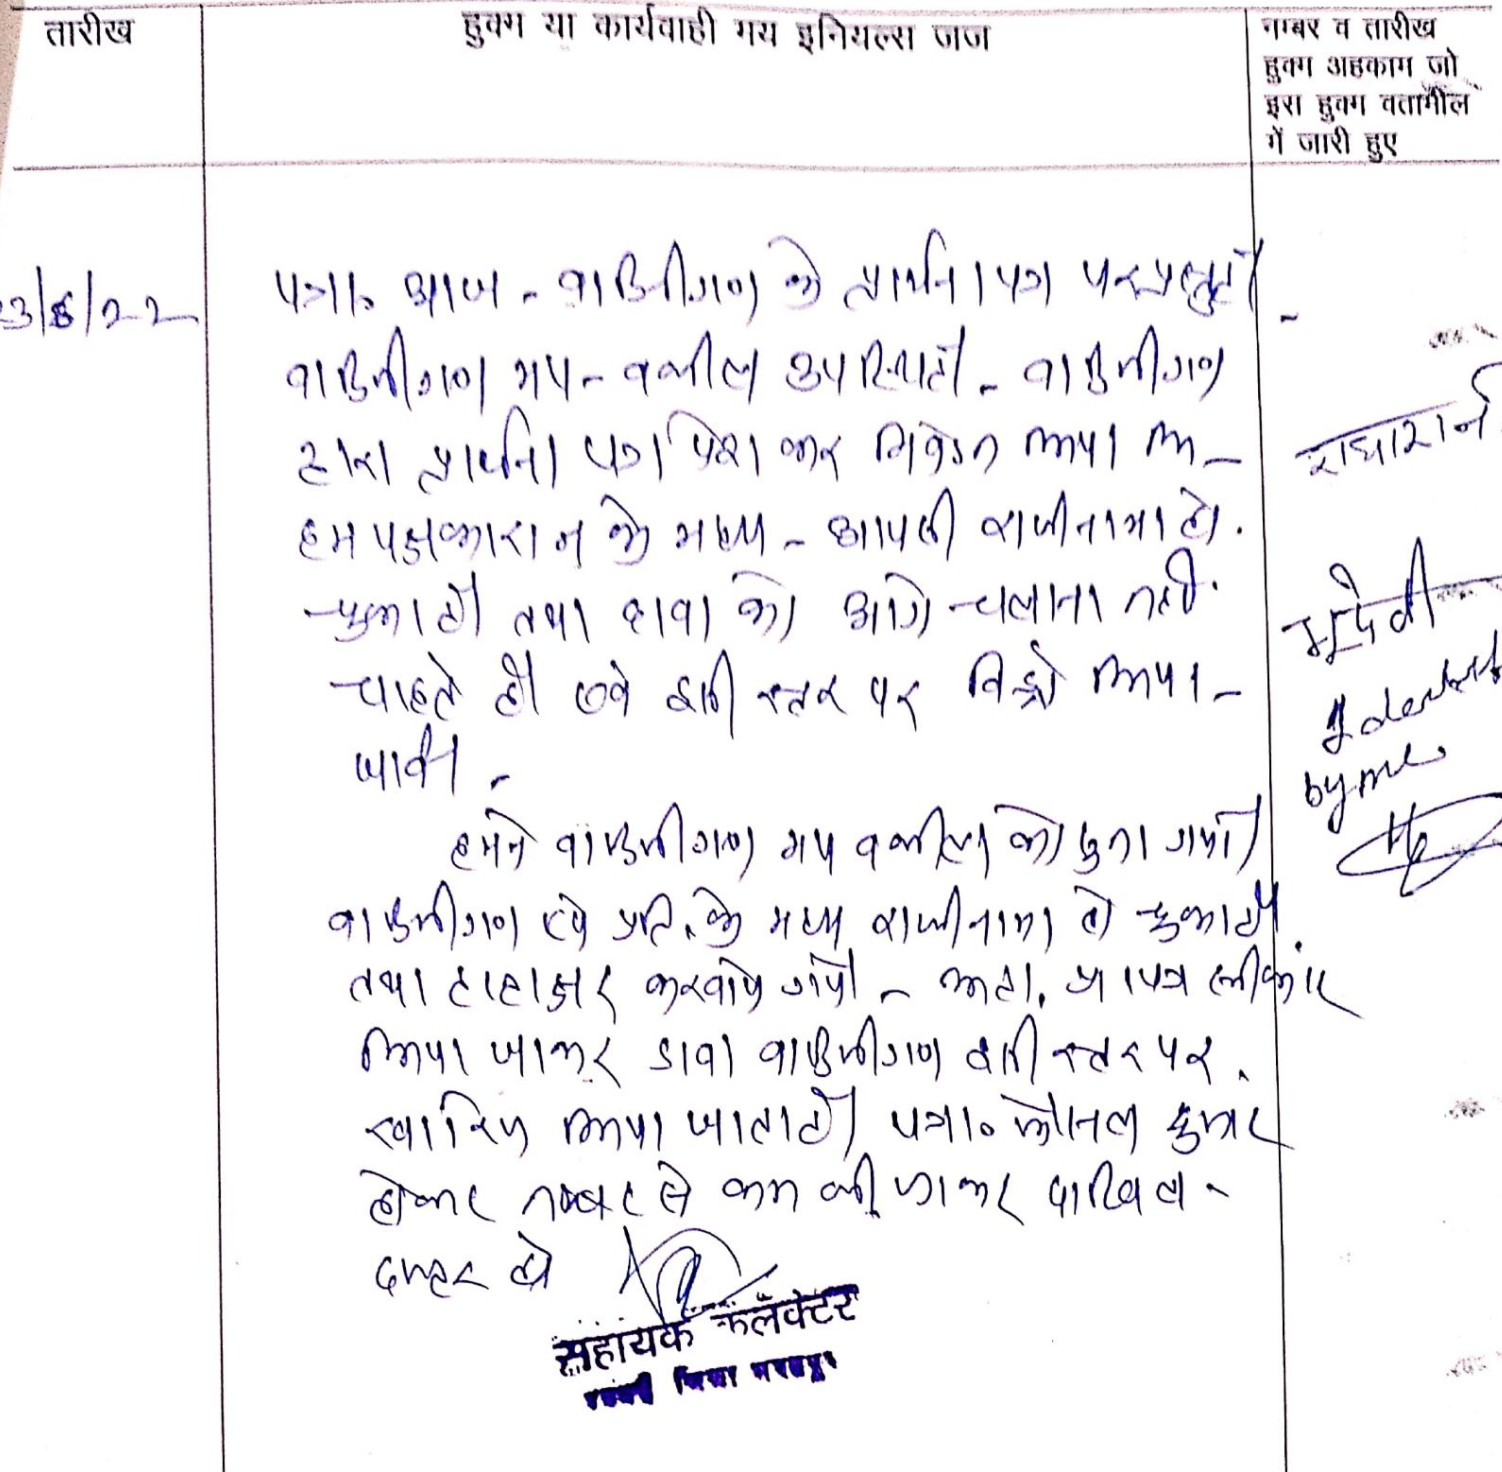 तारीख
हुक्म या कार्यवाही मय इनियल्स जज
नम्बर व तारीख
हुक्म अहकाम जो
इस हुक्म वतामील
में जारी हुए
3/8/22
पत्रा० आज - वादिनीगण के प्रार्थना पत्र पर प्रस्तुत है -
वादिनीगण मय - वकील उपस्थित है - वादिनीगण
द्वारा प्रार्थना पत्र पेश कर निवेदन किया कि -
हम पक्षकारान के मध्य - आपसी राजीनामा हो
चुका है तथा दावा को आगे चलाना नहीं
चाहते है एवं इसी स्तर पर विड्रो किया -
जावे ।
हमने वादिनीगण मय वकील को सुना गया
वादिनीगण एवं प्रति. के मध्य राजीनामा हो चुका है
तथा हस्ताक्षर करवाये गये - अतः प्रा पत्र स्वीकार
किया जाकर दावा वादिनीगण इसी स्तर पर
खारिज किया जाता है । पत्रा० फैसल शुमार
होकर नम्बर से कम की जाकर दाखिल
दफ्तर हो
सहायक कलेक्टर
जिला भरतपुर
भूदेवी
Identified
by me